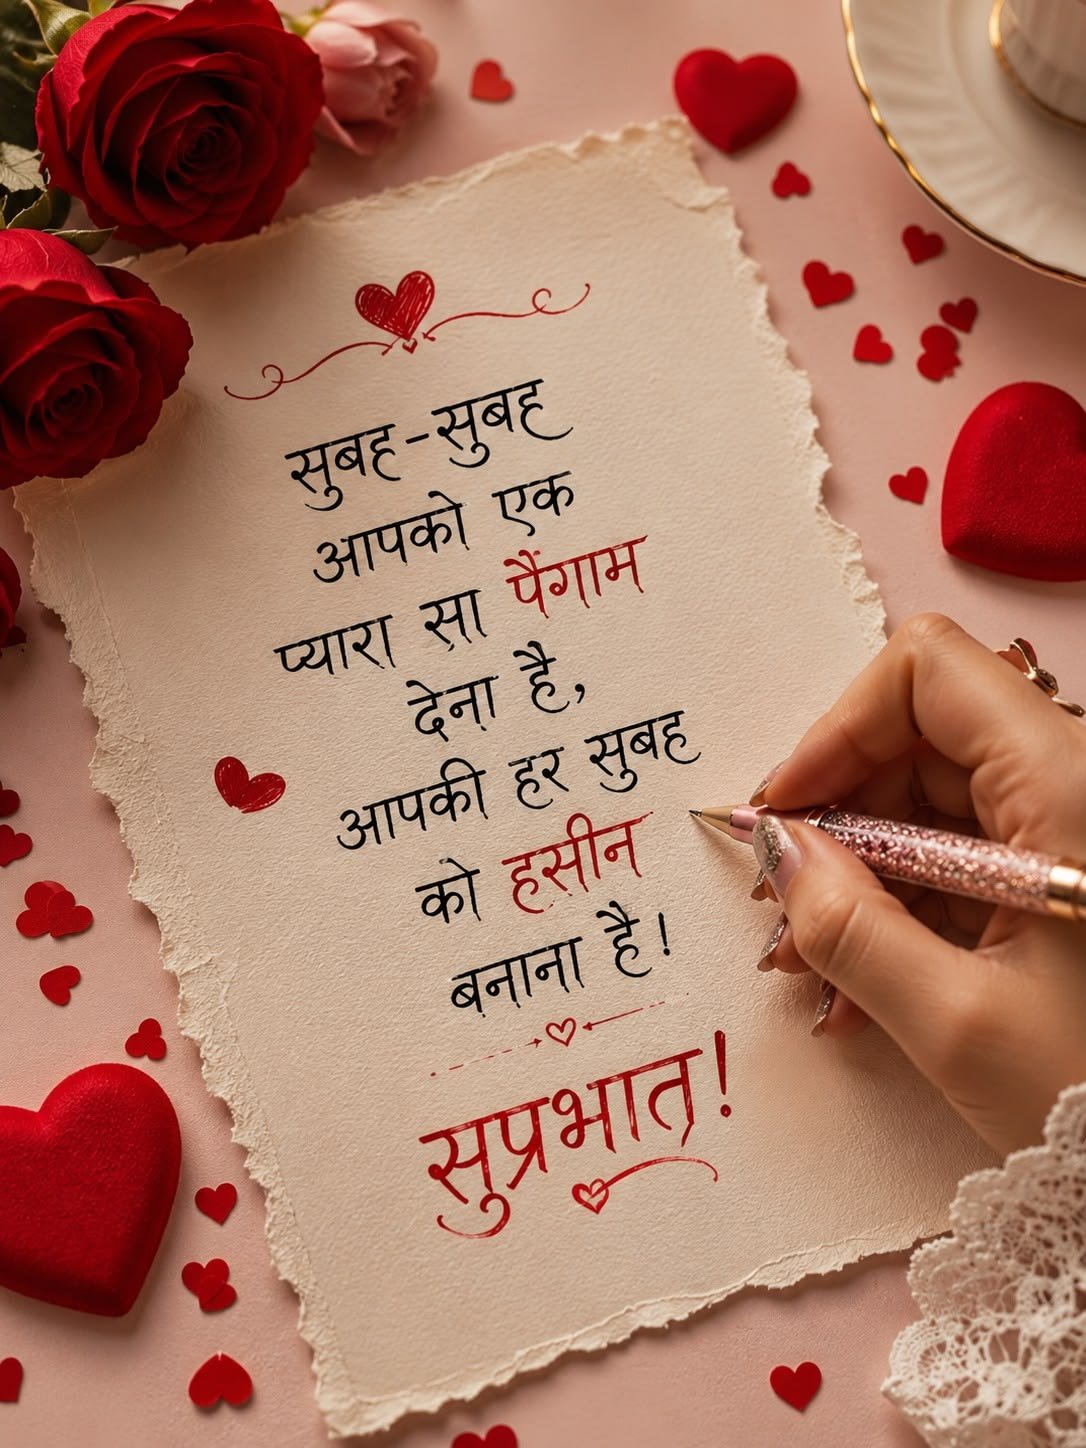 सुबह-सुबह
आपको एक
प्यारा सा पैंगाम
देना है,
आपकी हर सुबह
को हसीन
बनाना है!
सुप्रभात!